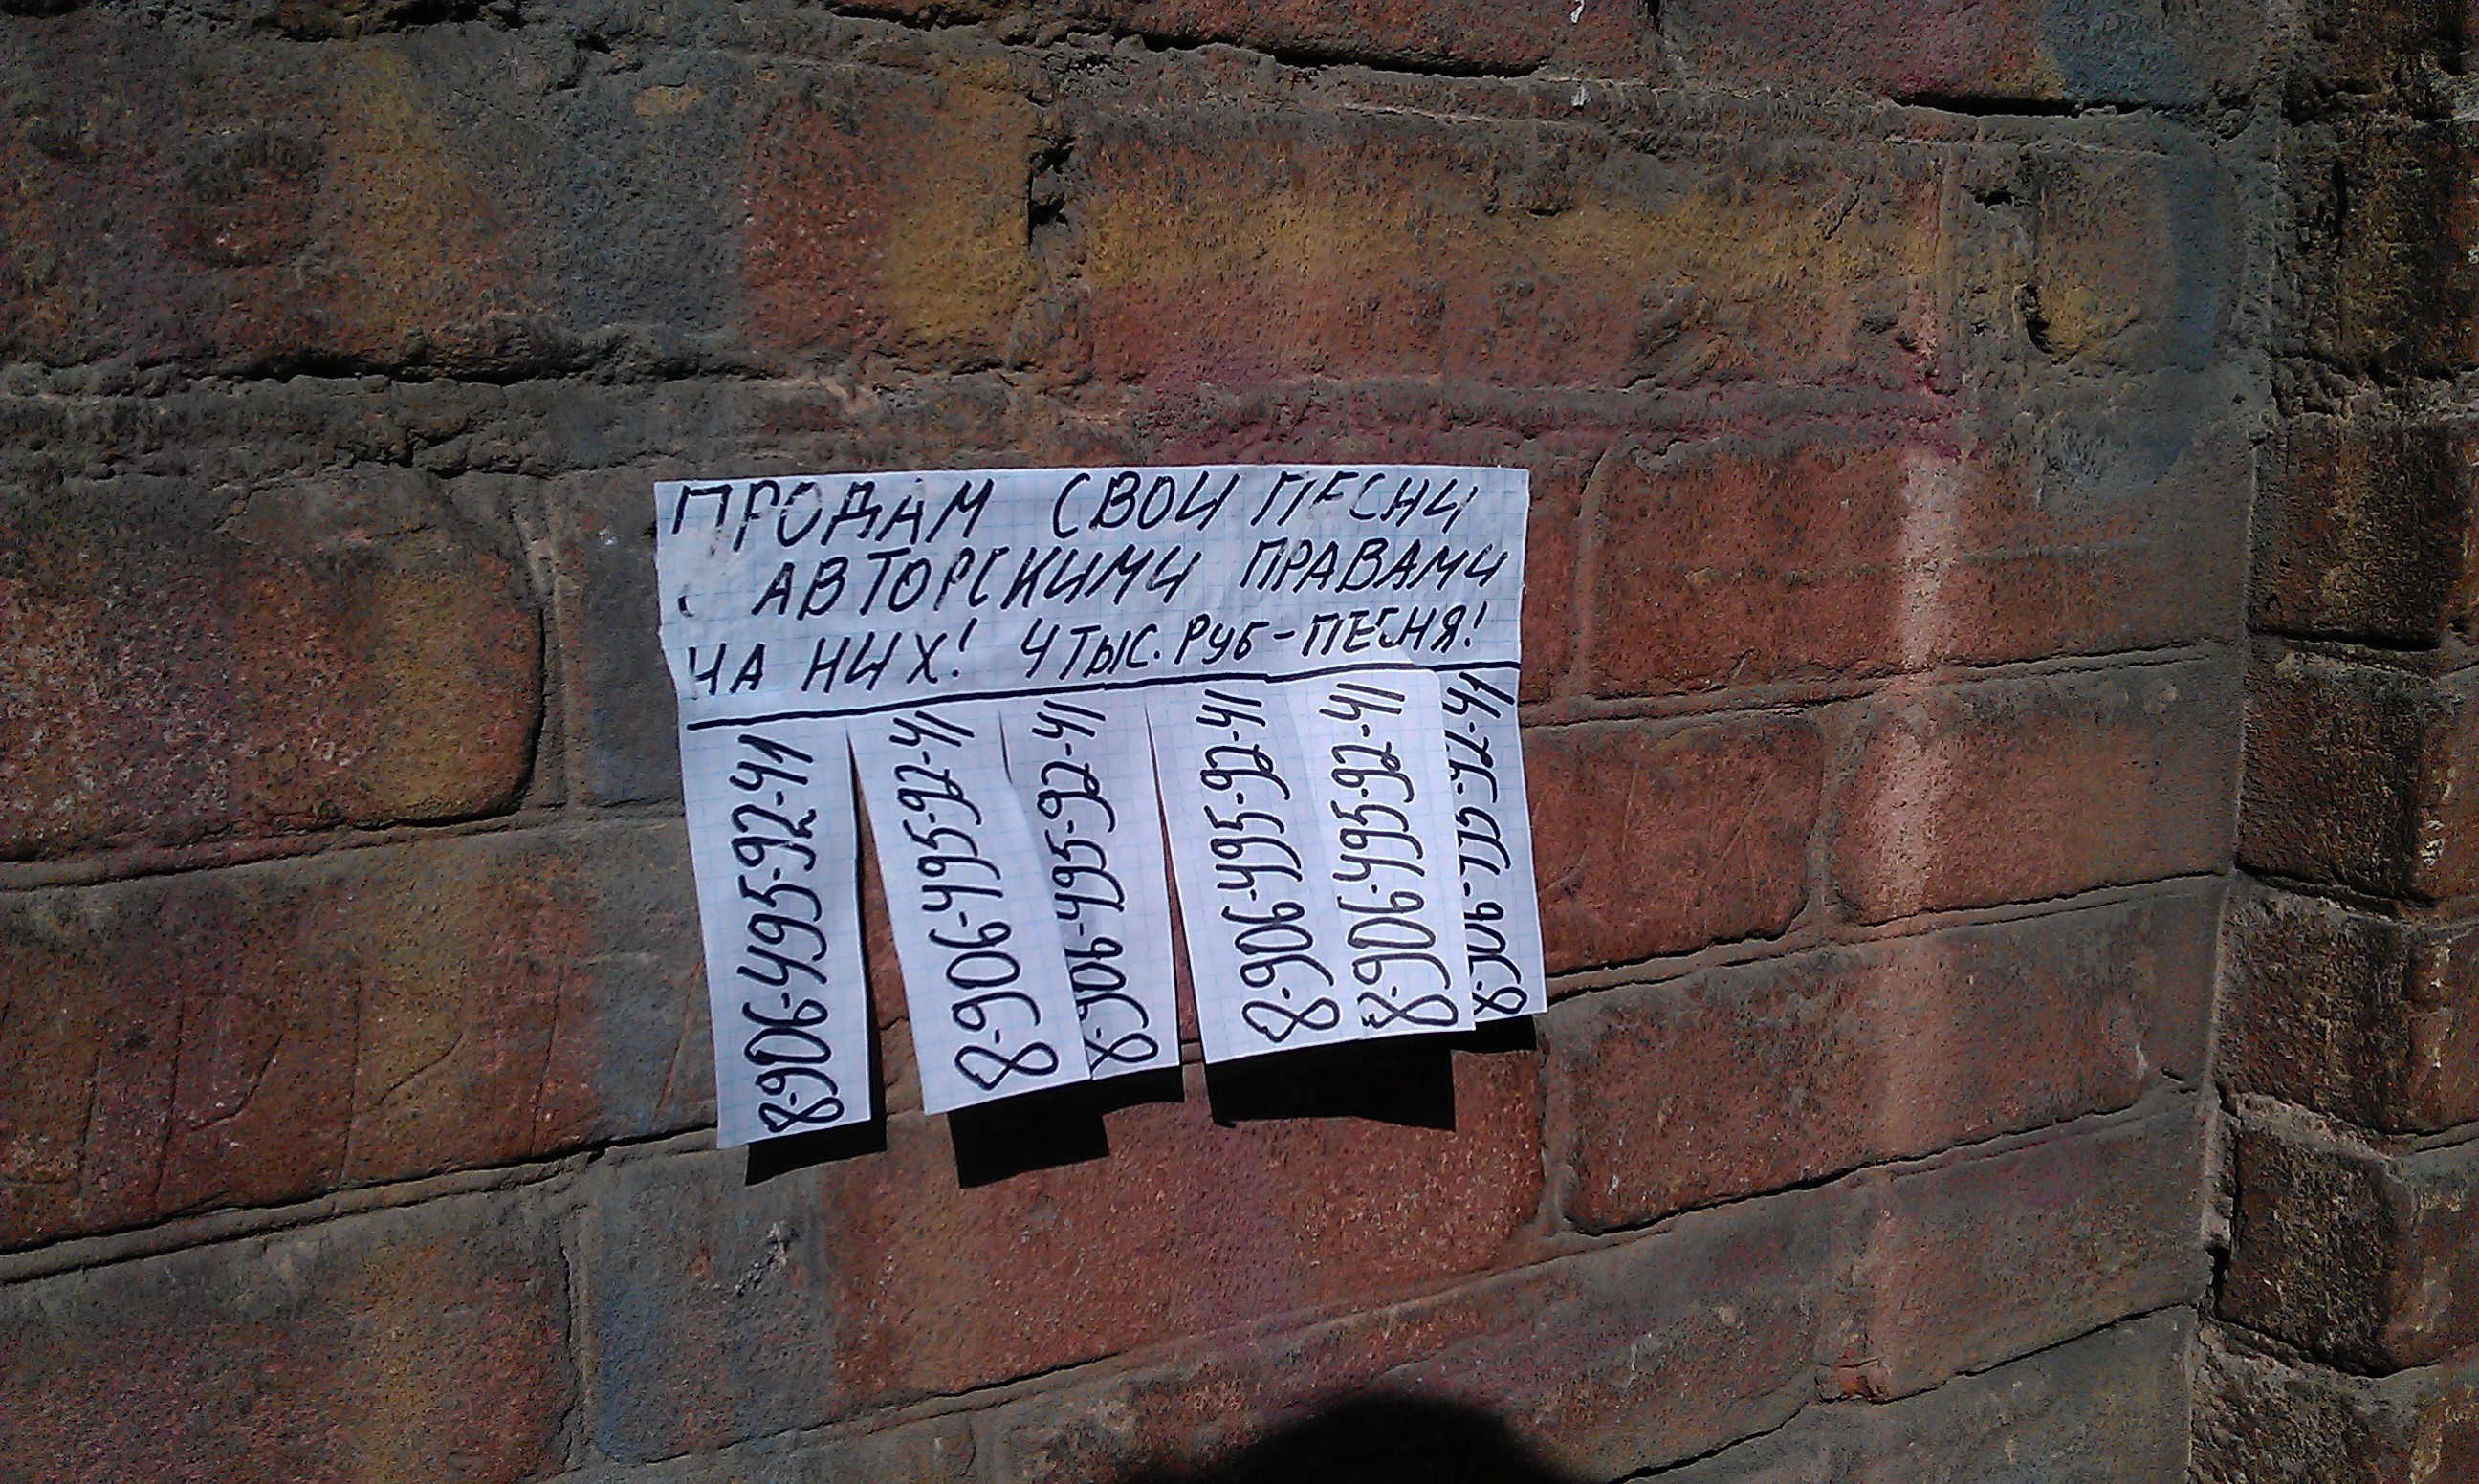 ПРОДАМ СВОИ ПЕСНИ
С АВТОРСКИМИ ПРАВАМИ
НА НИХ! 4 ТЫС. РУБ - ПЕСНЯ!
8-906-495-92-41
8-906-495-92-41
8-906-495-92-41
8-906-495-92-41
8-906-495-92-41
8-906-495-92-41